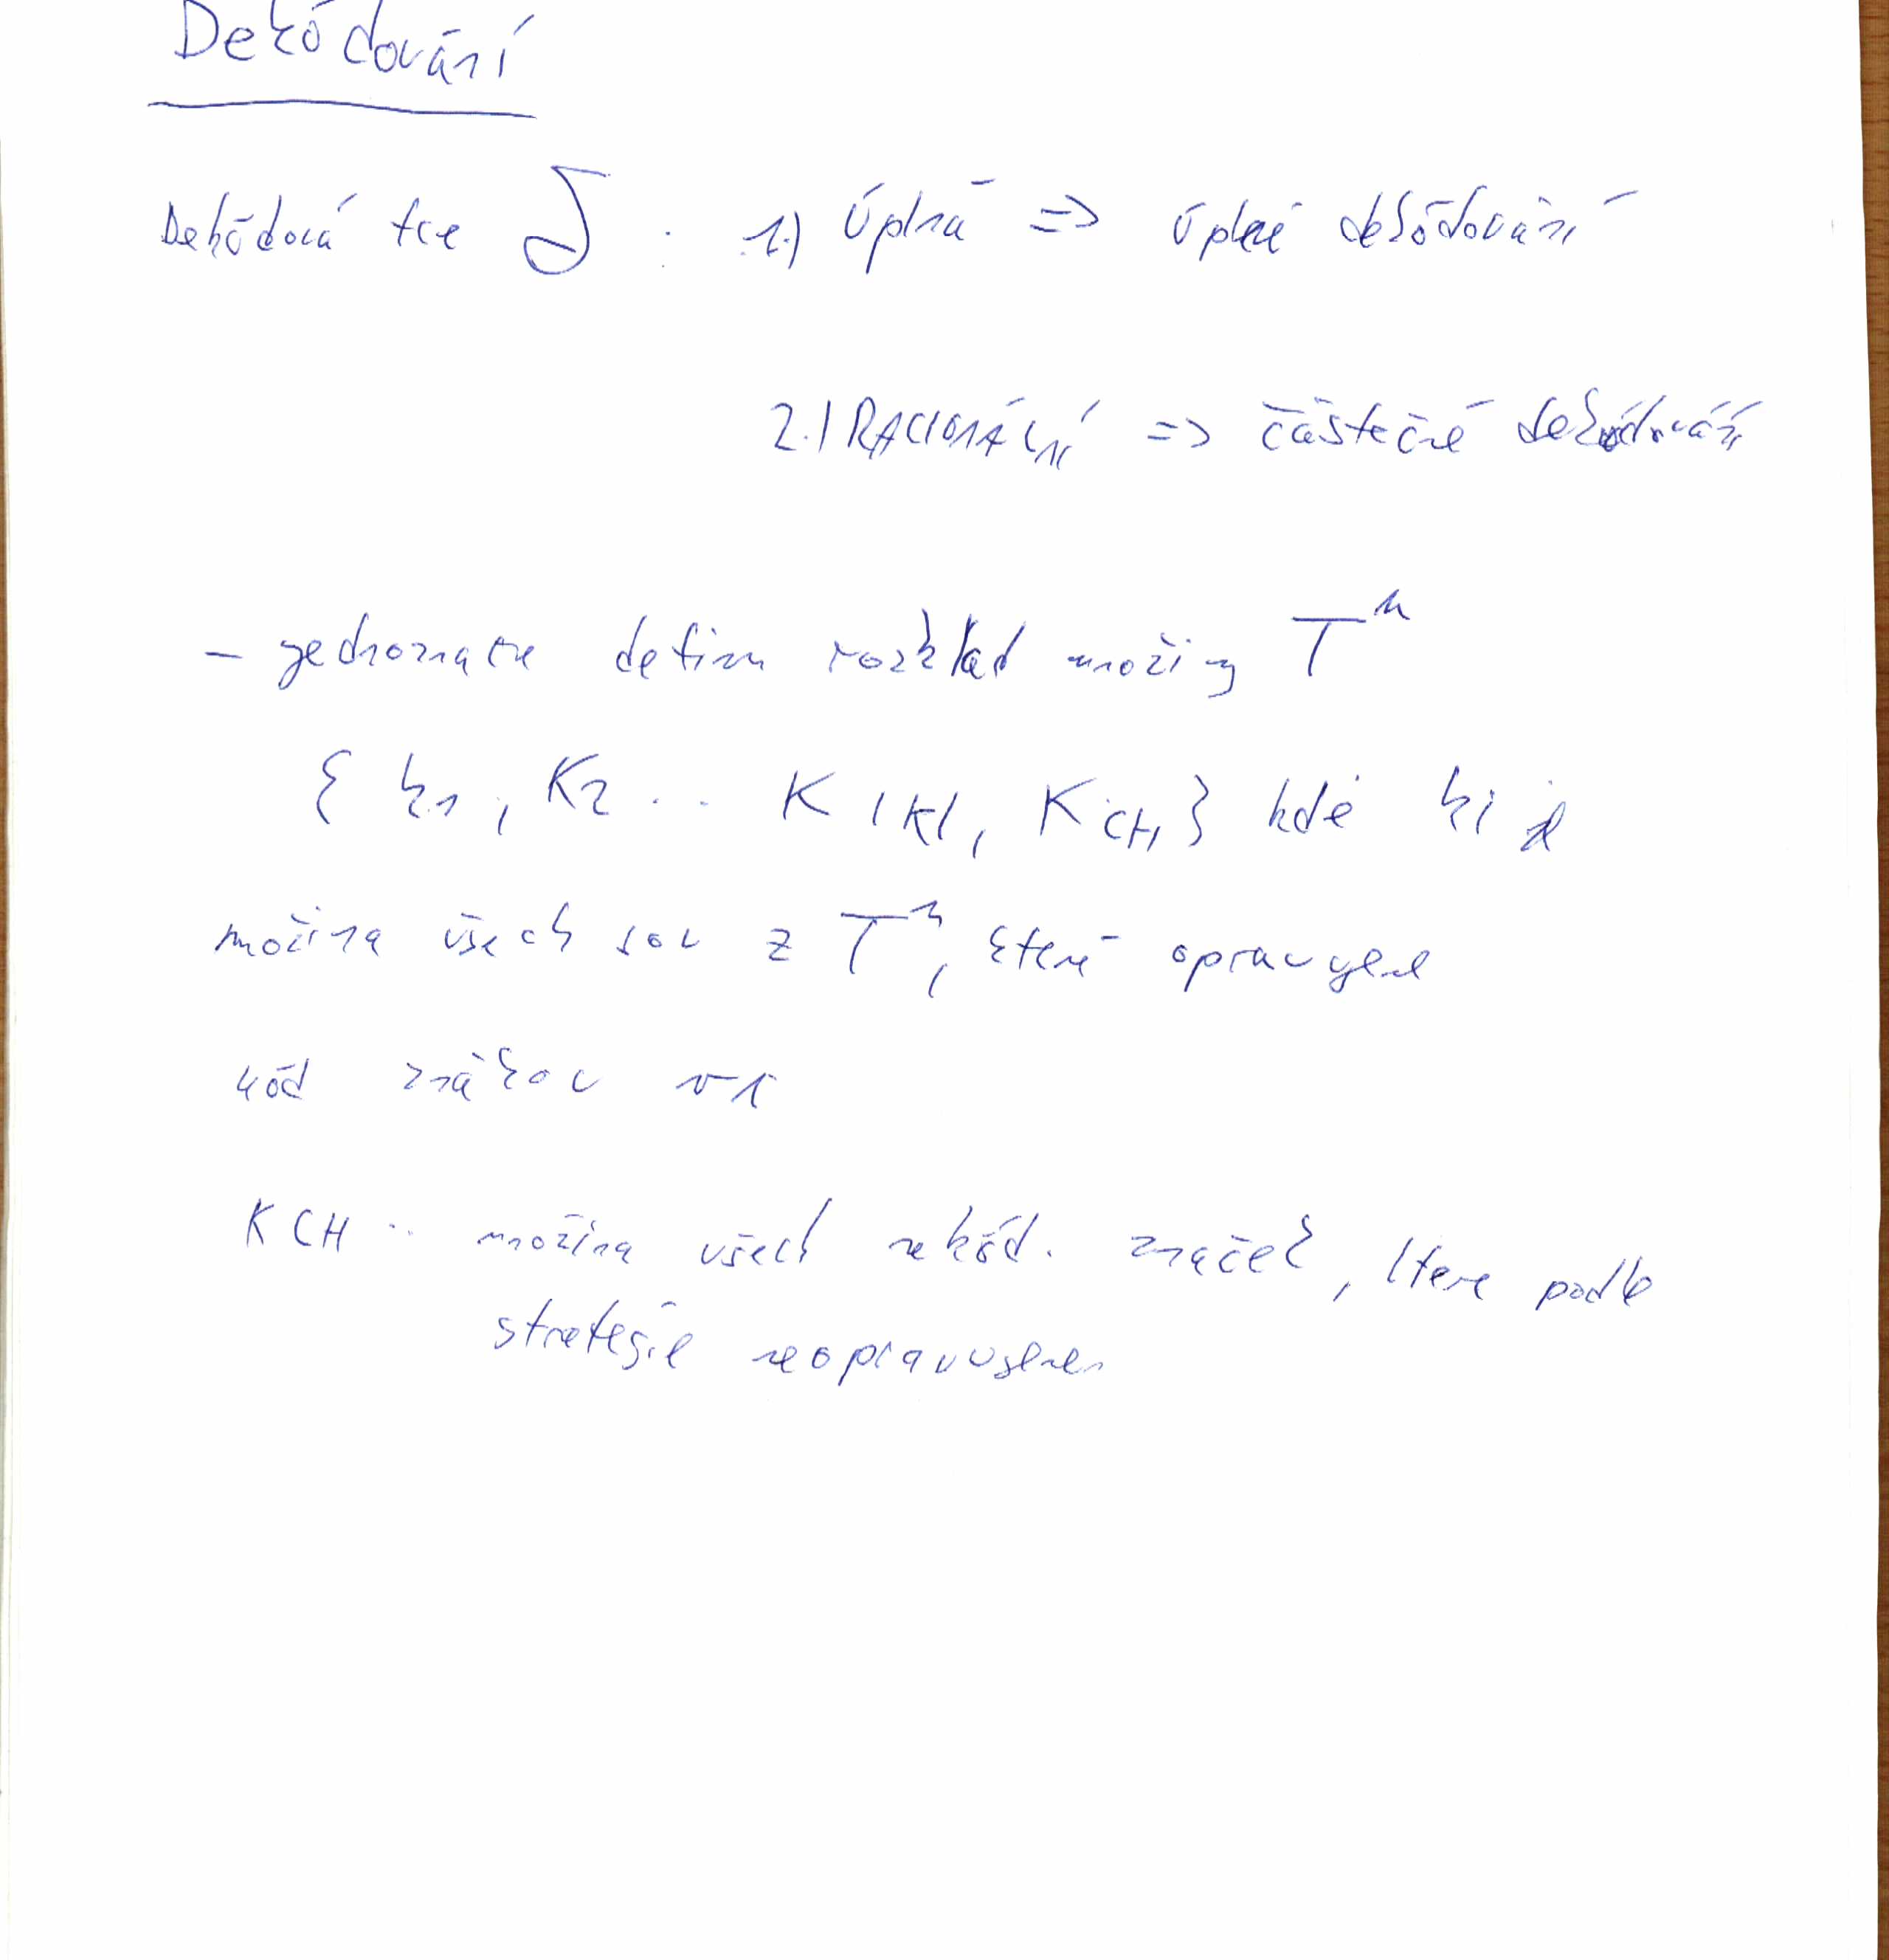 Dekódování
Dekódová fce δ : 1.) Úplná => úplné dekódování
2.) RACIONÁLNÍ => částečné dekódování
- jednoznačne defin rozklad množiny T^n
{ k1, K2 .. K |K|, K CH } kde ki je
množina všech slov z T^n, které opravujeme
kód znakou
KCH .. množina všech nekód. značek, ktere podle
strategie neopravujeme